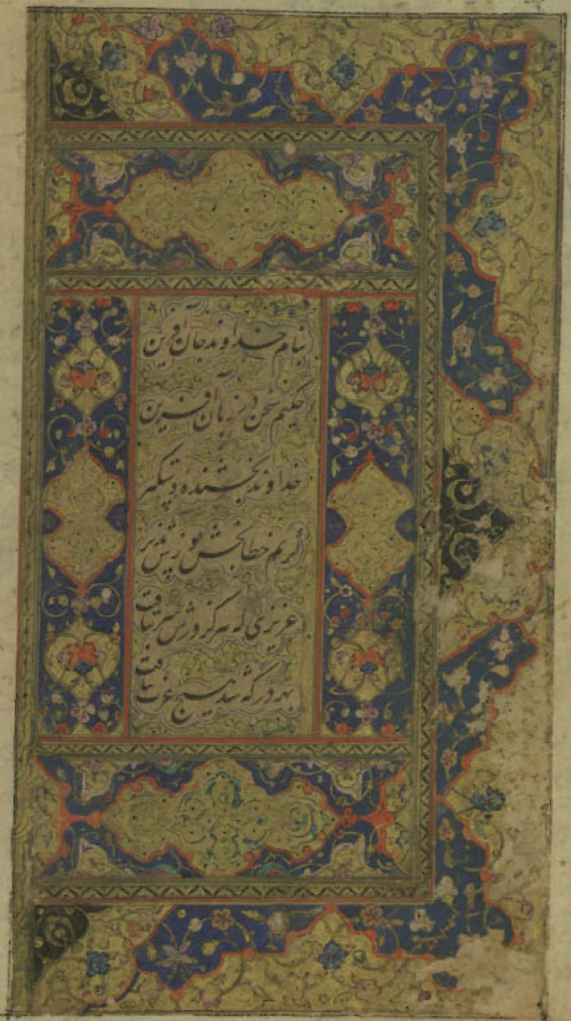 بنام خداوند جان آفرین
حکیم سخن در زبان آفرین
خداوند بخشنده دستگیر
کریم خطا بخش پوزش پذیر
عزیزی که هر کز درش سر بتافت
بهر در که شد هیچ عزت نیافت